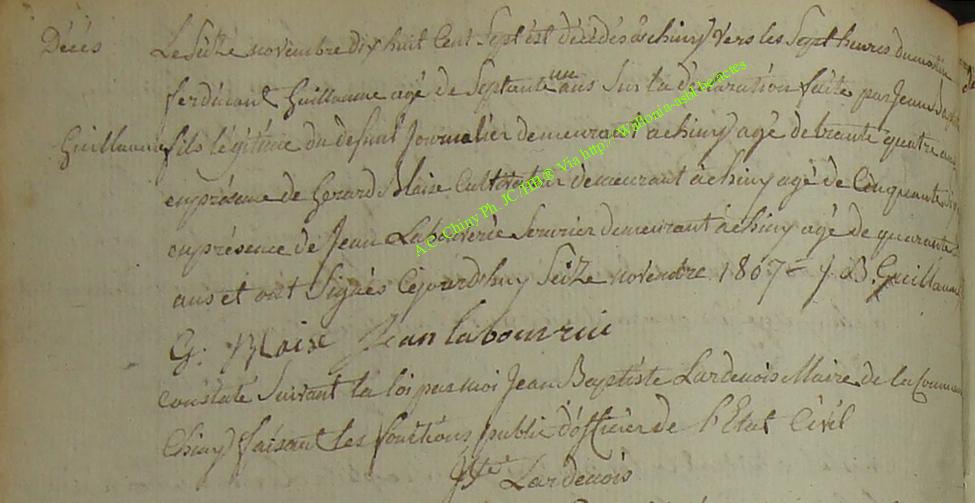 Décés Le Seitze novembre dix huit Cent Sept est décédés à chiny vers les Sept heures du matin
ferdinant Guillaume agé de Septante un ans Sur la déclaration faite par Jean
Guillaume fils légitime du defunt Journalier demeurant à chiny agé de trante quatre ans
en présence de Gerard Blaise Cultivateur demeurant à chiny agé de Cinquante
en présence de Jean Labouverie Serurier demeurant à chiny agé de quarante
ans et ont Signés Cejourdhuy Seitze novembre 1807 J. B. Guillaume
G. Blaise Jean labouvrie
constaté Suivant la loi par moi Jean Baptiste Lardenois Maire de la Commune
Chiny faisant les fonctions public d'officier de l'Etat Civil
Lardenois
A.C. Chiny Ph. JC/HB® Via http://wallonia-asbl.be-actes